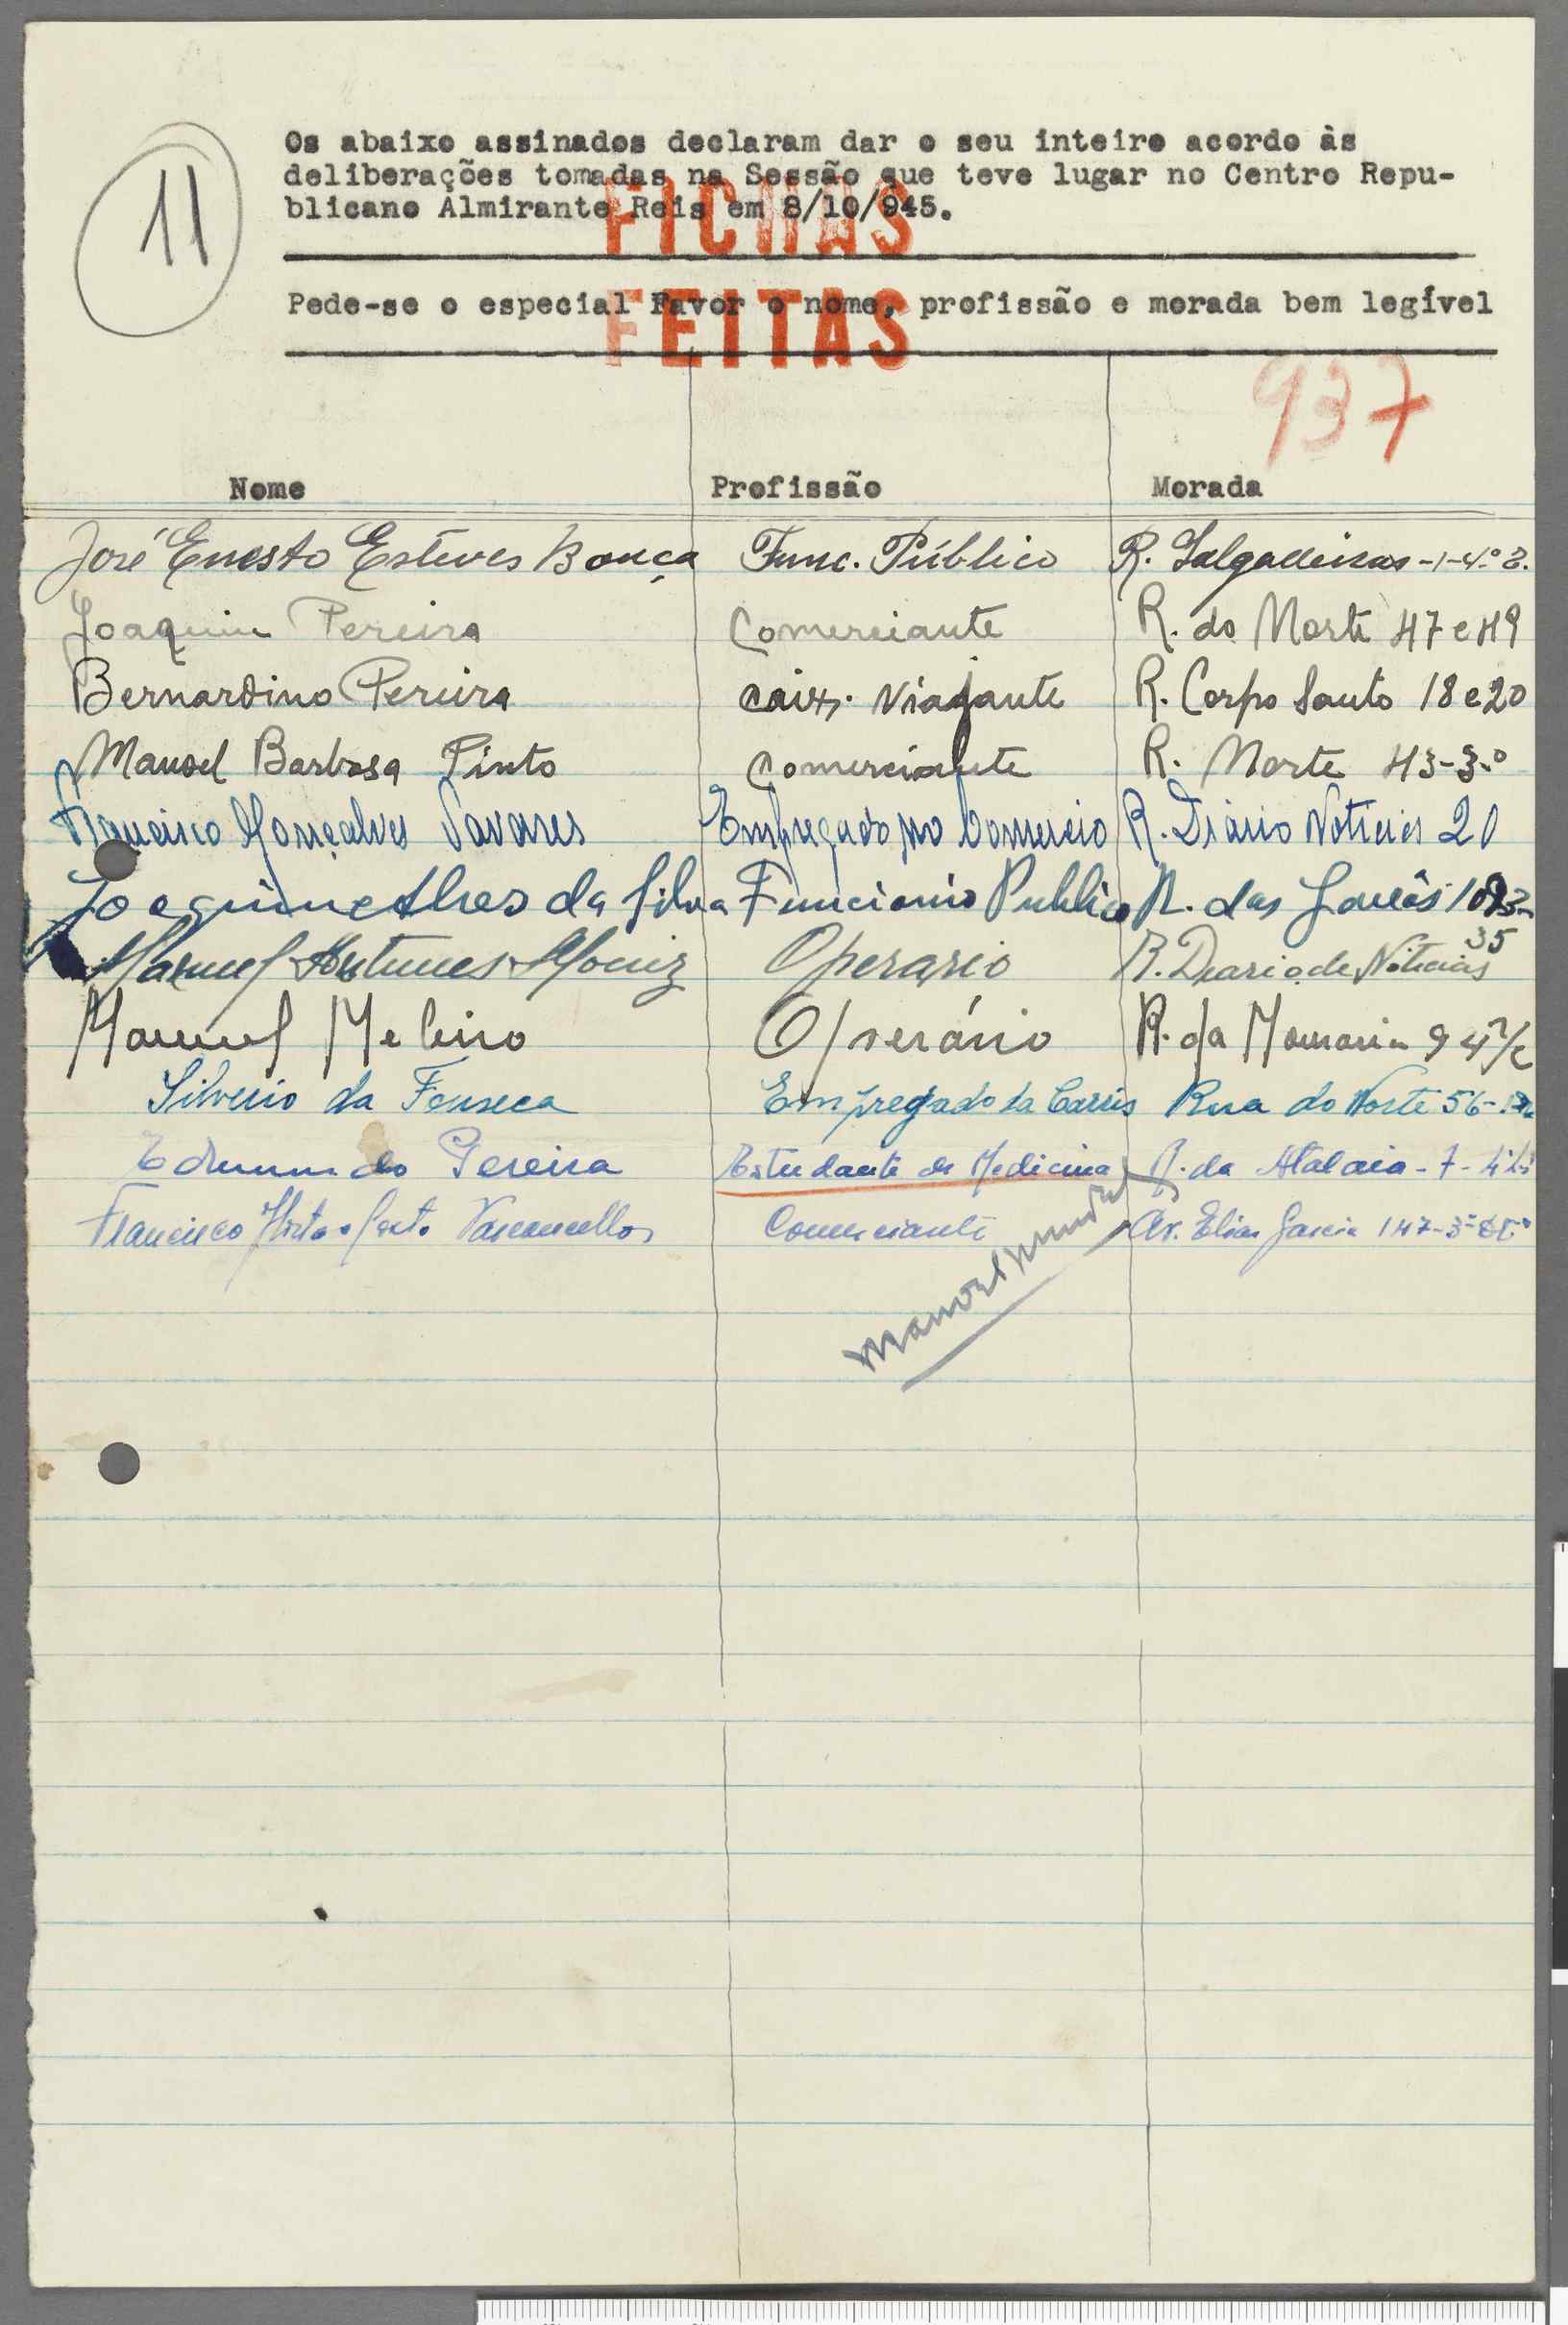 11
Os abaixo assinados declaram dar o seu inteiro acordo às
deliberações tomadas na Sessão que teve lugar no Centro Repu-
blicano Almirante Reis em 8/10/945.
FICHAS
FEITAS
Pede-se o especial Favor o nome, profissão e morada bem legível
937
Nome Profissão Morada
José Ernesto Esteves Bouça Func. Público R. Salgadeiras-1-4º
Joaquim Pereira Comerciante R. do Norte 47 e 49
Bernardino Pereira caix. Viajante R. Corpo Santo 18 e 20
Manoel Barbosa Pinto Comerciante R. Norte 43-3.º
Francisco Gonçalves Tavares Empregado no Comercio R. Diário Noticias 20
Joaquim Alves da Silva Funcionio Publico R. das Gaveas
Manuel Antunes Moniz Operario R. Diario de Noticias 35
Manuel Operário R. da Mouraria 9
Silverio da Fonseca Empregado da Carris Rua do Norte 56-
Edmundo Pereira Estudante de Medicina R. da Atalaia-7-
Francisco Vasconcellos Comerciante Av. Elias Garcia 147-3º
Manoel